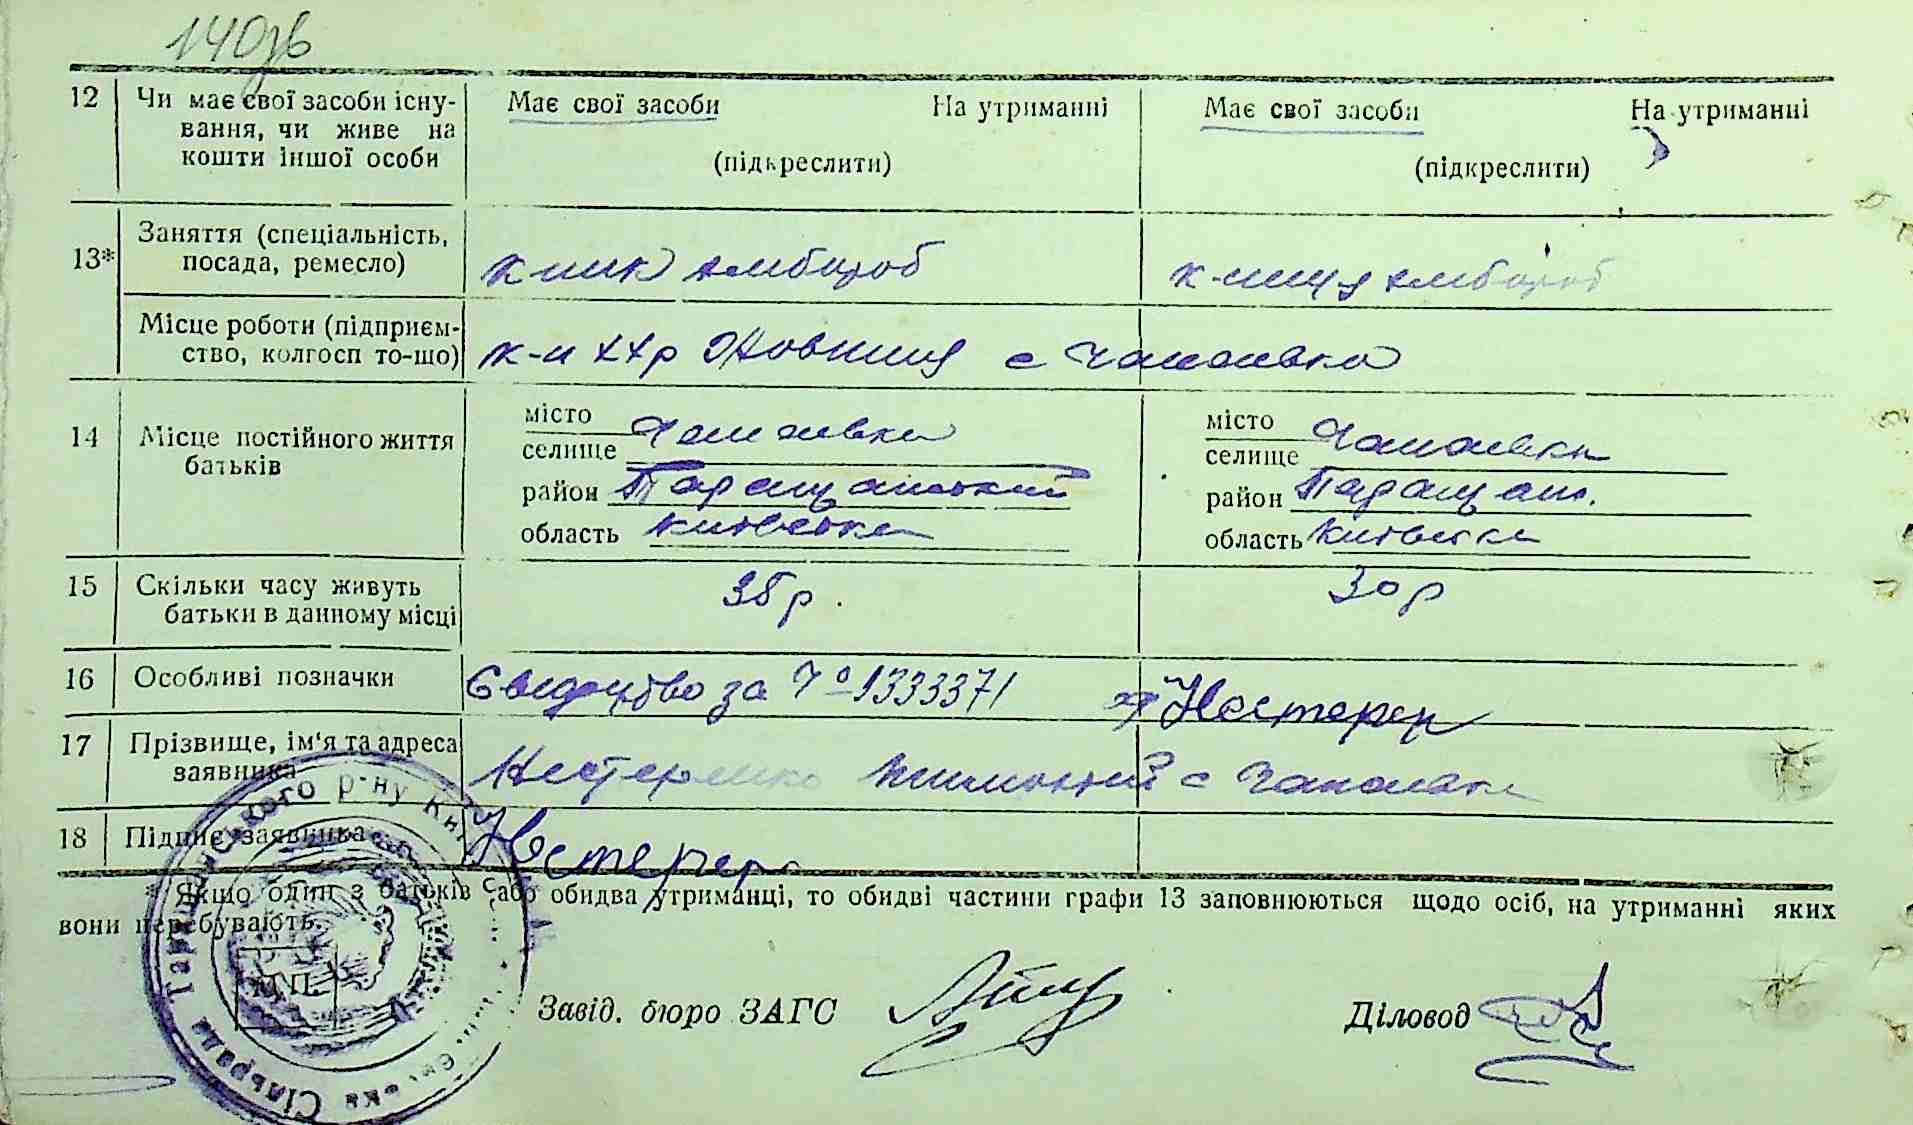 140зв
12 Чи має свої засоби існу- Має свої засоби На утриманні Має свої засоби На утриманні
вання, чи живе на
кошти іншої особи (підкреслити) (підкреслити)
13* Заняття (спеціальність,
посада, ремесло) к-ник хлібороб к-ниця хлібороб
Місце роботи (підприєм-
ство, колгосп то-що) к-п ХХр Жовтня с Чапаєвка
14 Місце постійного життя
батьків
місто місто
селище Чапаєвка селище Чапаєвка
район Таращанський район Таращан.
область Київська область Київська
15 Скільки часу живуть
батьки в данному місці 35 р. 30 р
16 Особливі позначки Свидоцтво за № 1333371 Нестерен
17 Прізвище, ім'я та адреса
заявника Нестеренко с Чапаєвка
18 Підпис заявника Нестерен
* Якщо один з батьків або обидва утриманці, то обидві частини графи 13 заповнюються щодо осіб, на утриманні яких
вони перебувають.
М.П.
Завід. бюро ЗАГС Діловод
Таращанського р-ну Сільрада